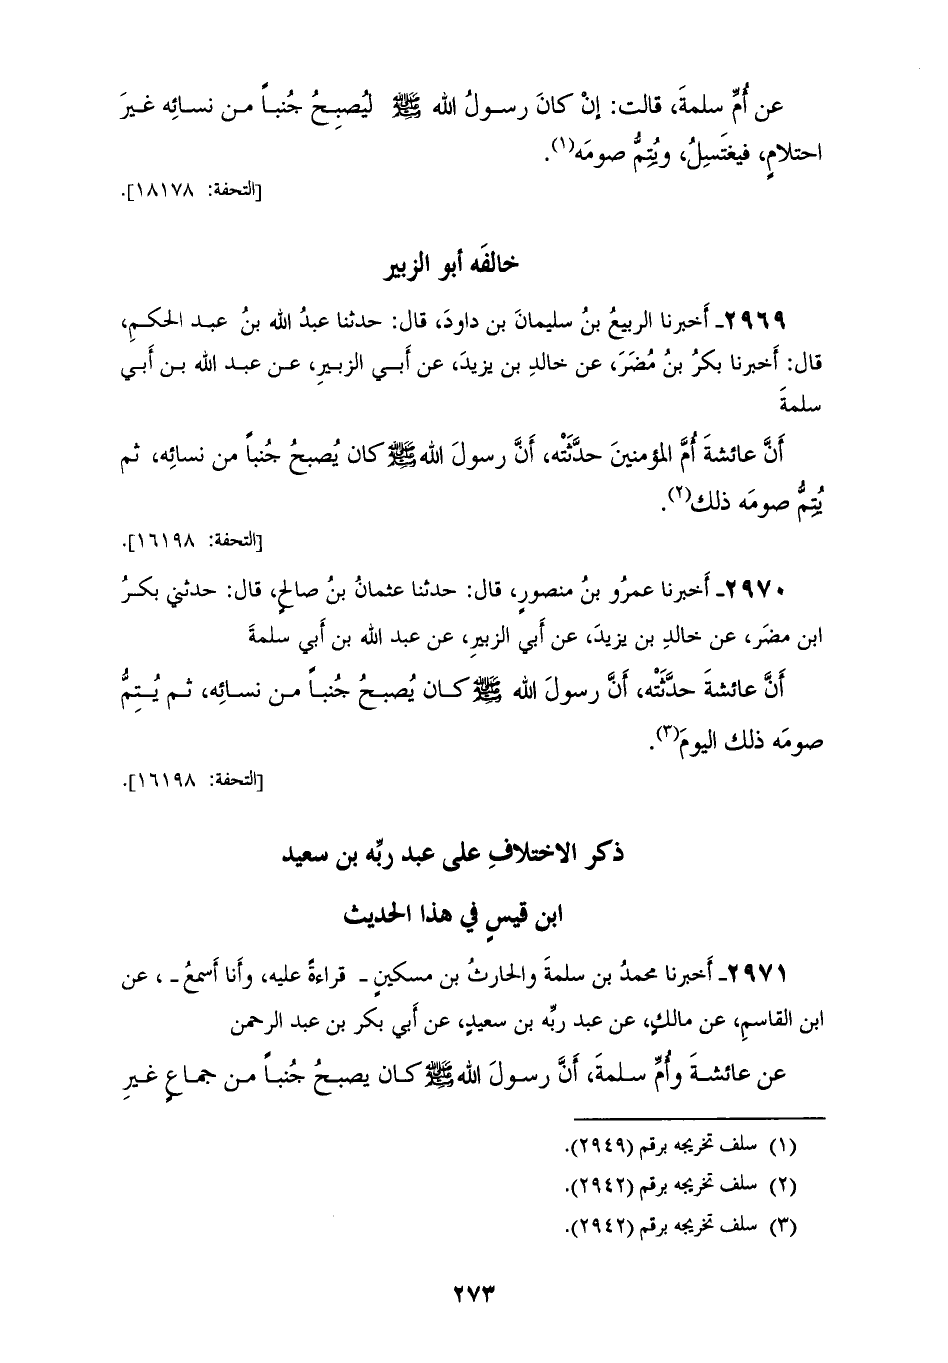 عن أُمِّ سلمةَ، قالت: إنْ كانَ رسـولُ الله ﷺ ليُصبِـحُ جُنبـاً مـن نسـائِه غـيرَ
احتلامٍ، فيغتَسِلُ، ويُتِمُّ صومَه(١).
[التحفة: ١٨١٧٨].
خالفَه أبو الزبير
٢٩٦٩ـ أَخبرنا الربيعُ بنُ سليمانَ بن داودَ، قال: حدثنا عبدُ الله بنُ عبـد الحكـمِ،
قال: أَخبرنا بكرُ بنُ مُضَرَ، عن خالدِ بن يزيدَ، عن أَبـي الزبـيرِ، عـن عبـد الله بـن أَبـي
سلمةَ
أَنَّ عائشةَ أُمَّ المؤمنينَ حدَّثَتْه، أَنَّ رسولَ الله ﷺ كان يُصبحُ جُنباً من نسائِه، ثم
يُتِمُّ صومَه ذلك(٢).
[التحفة: ١٦١٩٨].
٢٩٧٠ـ أَخبرنا عمرُو بنُ منصورٍ، قال: حدثنا عثمانُ بنُ صالحٍ، قال: حدثني بكـرُ
ابن مضَر، عن خالدِ بن يزيدَ، عن أَبي الزبيرِ، عن عبد الله بن أَبي سلمةَ
أَنَّ عائشةَ حدَّثَتْه، أَنَّ رسولَ الله ﷺ كـان يُصبـحُ جُنبـاً مـن نسـائِه، ثـم يُـتِمُّ
صومَه ذلك اليومَ(٣).
[التحفة: ١٦١٩٨].
ذكر الاختلافِ على عبد ربِّه بن سعيد
ابن قيسٍ في هذا الحديث
٢٩٧١ـ أَخبرنا محمدُ بن سلمةَ والحارثُ بن مسكينٍ ـ قراءةً عليه، وأَنا أَسمعُ ـ ، عن
ابن القاسمِ، عن مالكٍ، عن عبد ربِّه بن سعيدٍ، عن أَبي بكر بن عبد الرحمن
عن عائشـةَ وأُمِّ سـلمةَ، أَنَّ رسـولَ الله ﷺ كـان يصبـحُ جُنبـاً مـن جمـاعٍ غـيرِ
(١) سلف تخريجه برقم (٢٩٤٩).
(٢) سلف تخريجه برقم (٢٩٤٢).
(٣) سلف تخريجه برقم (٢٩٤٢).
٢٧٣